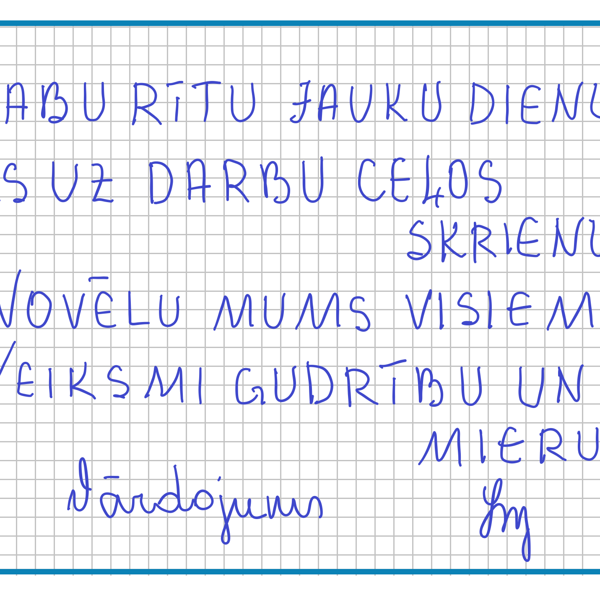 ABU RĪTU JAUKU DIENU
S UZ DARBU CEĻOS
SKRIENU
NOVĒLU MUMS VISIEM
VEIKSMI GUDRĪBU UN
MIERU
Vārdojums